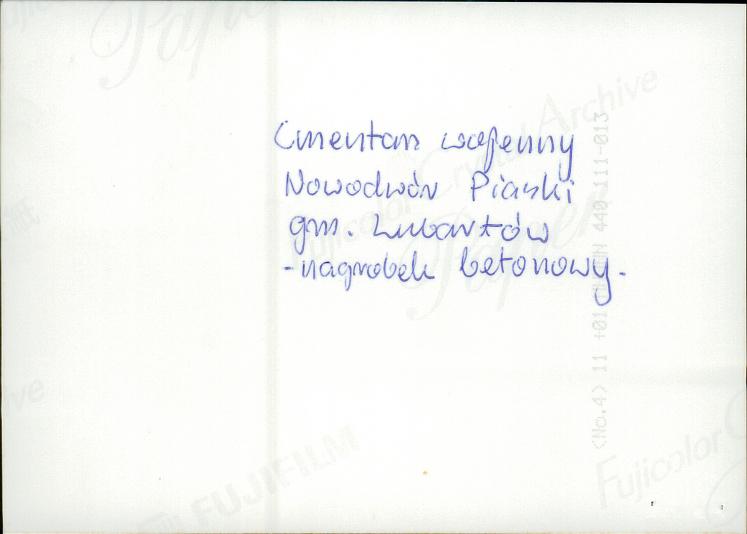 Cmentarz wojenny
Nowodwór Piaski
gm. Lubartów
- nagrobek betonowy.
Fujicolor Crystal Archive
Paper
FUJIFILM
Fujicolor